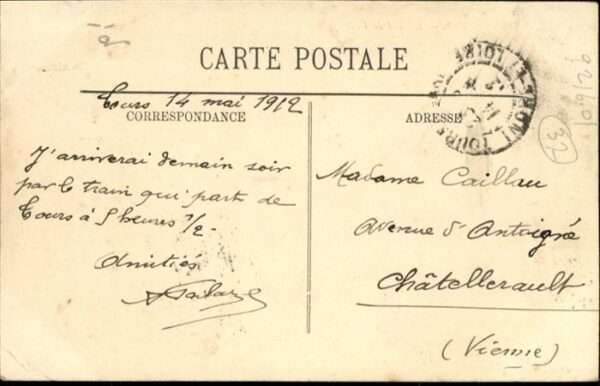 CARTE POSTALE
Tours 14 mai 1912
CORRESPONDANCE
ADRESSE
J'arriverai demain soir
par le train qui part de
Tours à 5 heures 1/2 -
Amitiés
Madame Caillau
Avenue d'Antoigné
Châtellerault
(Vienne)
TOURS
32